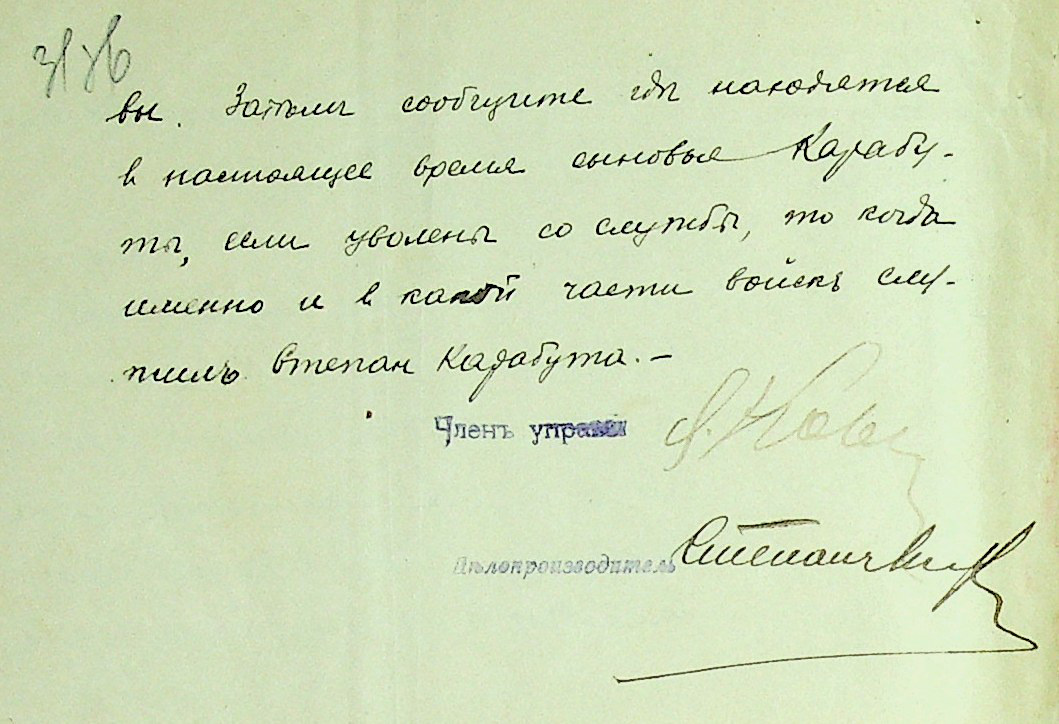 вы. Затѣмъ сообщите гдѣ находятся
в настоящее время сыновья Карабу-
ты, если уволены со службы, то когда
именно и в какой части войскъ слу-
жилъ Степан Карабута. —
Членъ управы
Дѣлопроизводитель